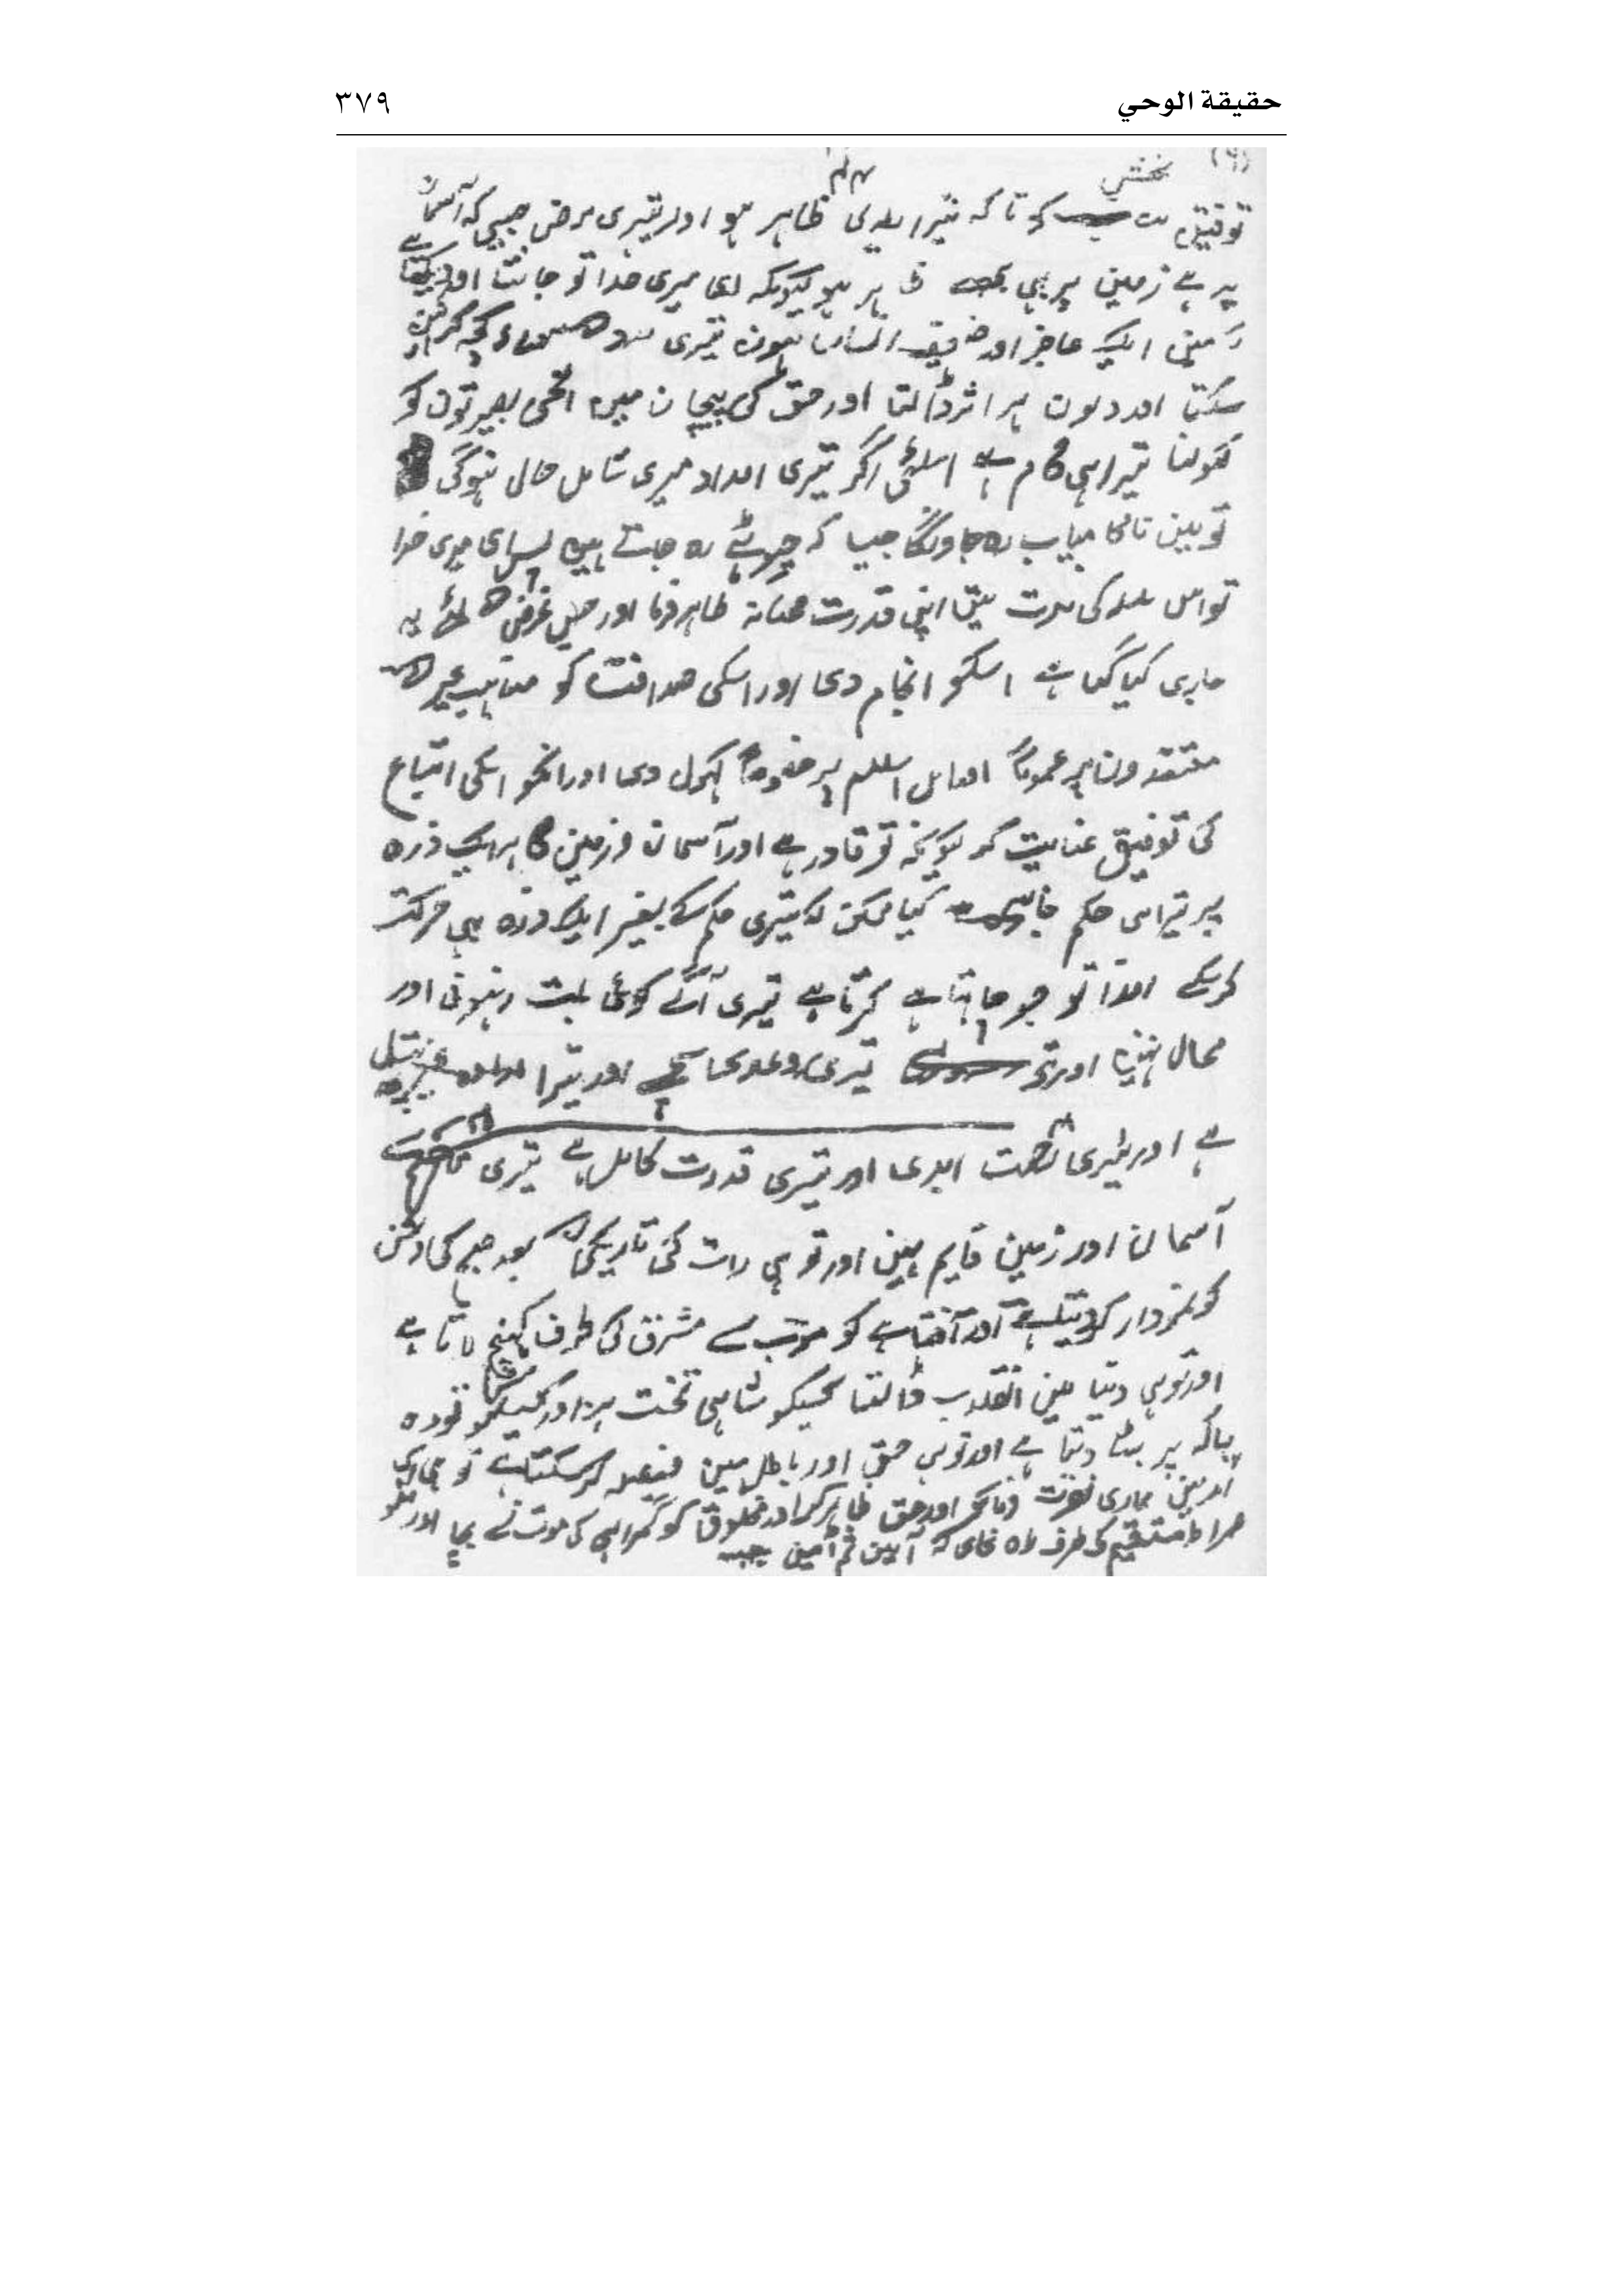 حقيقة الوحي ٣٧٩
(٩) بخشی
توفیق مت کو تا کہ تیرا ظاہر ہو اور تیری مرضی جیسی کہ آسمان
پر ہے زمین پر بہی ظاہر ہو کیونکہ ای میری خدا تو جانتا اور دیکھتا ہے
کہ مین ایک عاجز اور ضعیف انسان ہون تیری کچہ نہین کر
سکتا اور دلون پر اثر ڈالنا اور حق کی پہچان مین انکی بصیرتون کو
کھولنا تیرا ہی کام ہے اسلئی اگر تیری امداد میری شامل حال نہوگی
تو مین ناکامیاب رہ جاونگا جیسا کہ جہوٹے رہ جاتے ہین پس ای میری خدا
تو اس کی مین اپنی قدرت ظاہر فرما اور جس غرض کے لئے یہ
جاری کیا گیا ہے اسکو انجام دی اور اسکی صداقت کو مذاہب غیر کے
معتقدون پر عموماً اور اہل اسلام پر خصوصاً کہول دی اور انکو اسکی اتباع
کی توفیق عنایت کر کیونکہ تو قادر ہے اور آسمان و زمین کا ہر ایک ذرہ
پر تیرا ہی حکم کیا ممکن کہ تیری حکم کے بغیر ایک ذرہ بہی حرکت
کرسکے تو جو چاہتا ہے کرتا ہے تیری آگے کوئی بات انہونی اور
محال نہین اور تیری وعدی سچے اور تیرا ارادہ غیر متبدل
ہے اور تیری رحمت ابدی اور تیری قدرت کامل ہے تیری حکم سے
آسمان اور زمین قایم ہین اور تو ہی رات کی تاریکی کے بعد صبح کی روشنی
کو نمودار کر دیتا ہے اور آفتاب کو مغرب سے مشرق کی طرف کہینچ لاتا ہے
اور تو ہی دنیا مین انقلاب ڈالتا کسیکو شاہی تخت پر اور کسیکو تودہ
خاکہ پر بٹا دیتا ہے اور تو ہی حق اور باطل مین فیصلہ کر سکتا ہے تو ہماری
اور مین ہماری نصرت فرما اور حق ظاہر کر اور مخلوق کو گمراہی کی موت سے بچا اور
صراط مستقیم کی طرف راہ نمای کر آمین ثم آمین